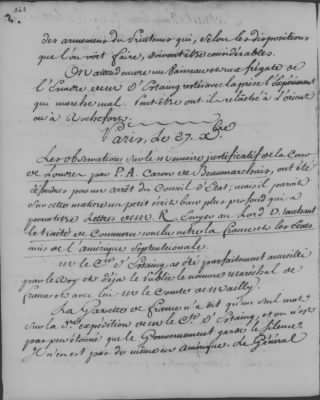 2.
des armemens du Printems qui, selon les dispositions
que l'on voit faire, doivent être considérables.
On attend encore un Vaisseau et une frégate de
l'Escadre de M. d'Estaing restés avec la prise l'Experiment
qui marche mal. Peut-être ont ils relâché à l'orient
ou à Rochefort.
Paris, Le 27. Xbre
Les observations sur le mémoire justificatif de la Cour
de Londres par P. A. Caron de Beaumarchais, ont été
défendues par un arrêt du Conseil d'Etat; mais il paroit
sur cette matiere un petit écrit bien plus profond que a
pour titre Lettres de M. R. Luyer au Lord D. touchant
le traité de Commerce conclu entre la France et les Etats
unis de l'amérique Septentrionale.
M. le Cte. d'Estaing a été parfaitement accueilli
par le Roy et déja le Public le nomme maréchal de
france et avec lui Mr le Comte de Mailly.
La Gazette de France n'a dit qu'un seul mot
sur la expédition de M. le Cte. d'Estaing, et on n'est
pas peu étonné que le Gouvernement garde le silence.
Il n'en est pas de même en amérique. Le Général